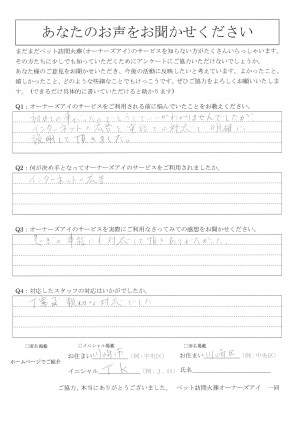 あなたのお声をお聞かせください
まだまだペット訪問火葬(オーナーズアイ)のサービスを知らない方がたくさんいらっしゃいます。
その方たちに少しでも知っていただくためにアンケートにご協力いただけないでしょうか。
あなた様のご意見をお聞かせいただき、今後の活動に反映したいと考えています。よかったこと、
嬉しかったこと、どのような些細なことでもけっこうです。ぜひご協力をよろしくお願いいたします。
(できるだけ具体的に書いていただけると助かります)
Q1:オーナーズアイのサービスをご利用される前に悩んでいたことをお教えください。
初めての事だったのでどうしていいかわかりませんでしたが
インターネットの広告と電話での対応で明確に
説明して頂きました。
Q2:何が決め手となってオーナーズアイのサービスをご利用されましたか。
インターネットの広告
Q3:オーナーズアイのサービスを実際にご利用なさってみての感想をお聞かせください。
急ぎの事にも対応して頂きありがたかった。
Q4:対応したスタッフの対応はいかがでしたか。
丁寧 親切な対応でした
ホームページでご紹介
□匿名掲載 □イニシャル掲載 □実名掲載
お住まい 川崎市 (例:中央区) お住まい 川崎区 (例:中央区)
イニシャル T.K (例:J.S) 氏名
ご協力、本当にありがとうございました。 ペット訪問火葬オーナーズアイ 一同